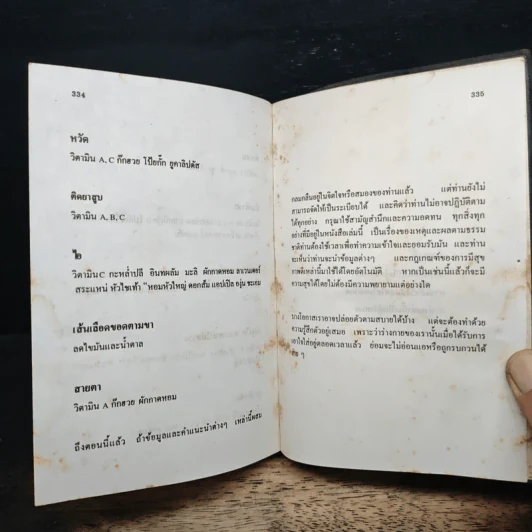 334
หวัด
วิตามิน A, C กึกฮวย โป้ยกั๊ก ยูคาลิปตัส
ติดยาสูบ
วิตามิน A, B, C
ไอ
วิตามิน C กะหล่ำปลี อินทผลัม มะลิ ผักกาดหอม ลาเวนเดอร์
สระแหน่ หัวไชเท้า หอมหัวใหญ่ ดอกส้ม แอปเปิล องุ่น ชะเอม
เส้นเลือดขอดตามขา
ลดไขมันและน้ำตาล
สายตา
วิตามิน A กึกฮวย ผักกาดหอม
ถึงตอนนี้แล้ว ถ้าข้อมูลและคำแนะนำต่างๆ เหล่านี้ผสม
335
กลมกลืนอยู่ในจิตใจหรือสมองของท่านแล้ว แต่ท่านยังไม่
สามารถจัดให้เป็นระเบียบได้ และคิดว่าท่านไม่อาจปฏิบัติตาม
ได้ทุกอย่าง กรุณาใช้สามัญสำนึกและความอดทน ทุกสิ่งทุก
อย่างที่มีอยู่ในหนังสือเล่มนี้ เป็นเรื่องของเหตุและผลตามธรรม
ชาติท่านต้องใช้เวลาเพื่อทำความเข้าใจและยอมรับมัน และท่าน
จะเห็นว่าท่านจะนำข้อมูลต่างๆ และกฎเกณฑ์ของการมีสุข
ภาพดีเหล่านี้มาใช้ได้โดยอัตโนมัติ หากเป็นเช่นนี้แล้วก็จะมี
ความสุขได้โดยไม่ต้องมีความพยายามแต่อย่างใด
บางโอกาสเราอาจปล่อยตัวตามสบายได้บ้าง แต่จะต้องทำด้วย
ความรู้สึกตัวอยู่เสมอ เพราะว่าร่างกายของเรานั้นเมื่อได้รับการ
เอาใจใส่อยู่ตลอดเวลาแล้ว ย่อมจะไม่อ่อนแอหรือถูกรบกวนได้
ง่าย ๆ